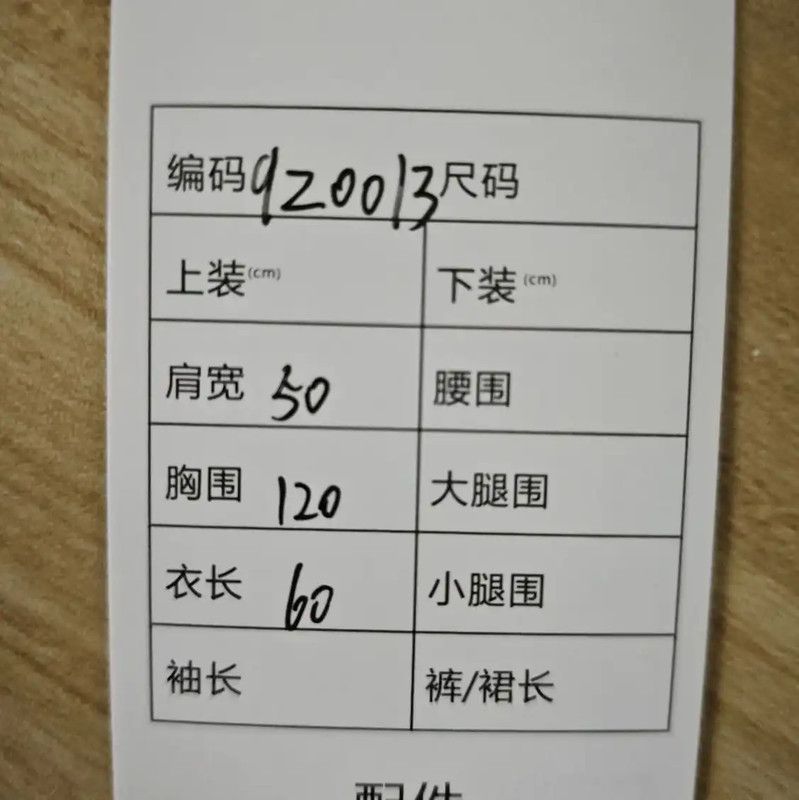 编码 920013 尺码
上装(cm) 下装(cm)
肩宽 50 腰围
胸围 120 大腿围
衣长 60 小腿围
袖长 裤/裙长
配件